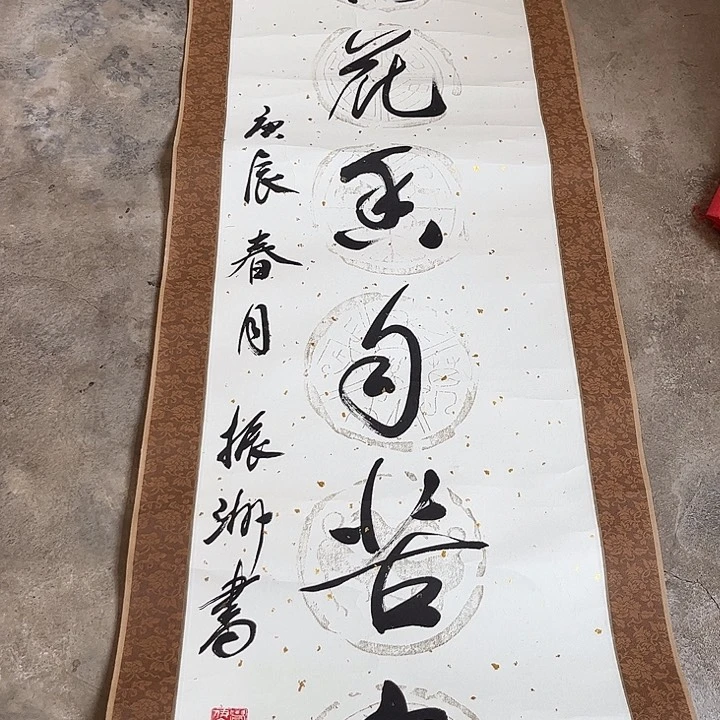 花香自苦
庚辰春月 振洲書